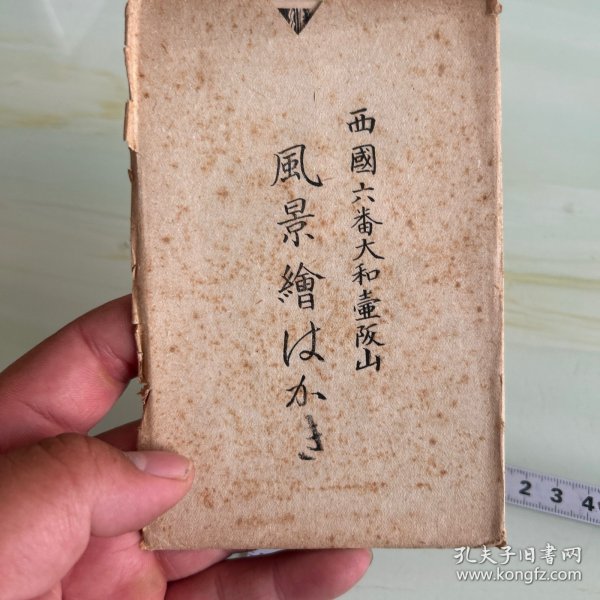 西國六番大和壷阪山
風景繪はかき
2 3 4
孔夫子旧书网
www.kongfz.com